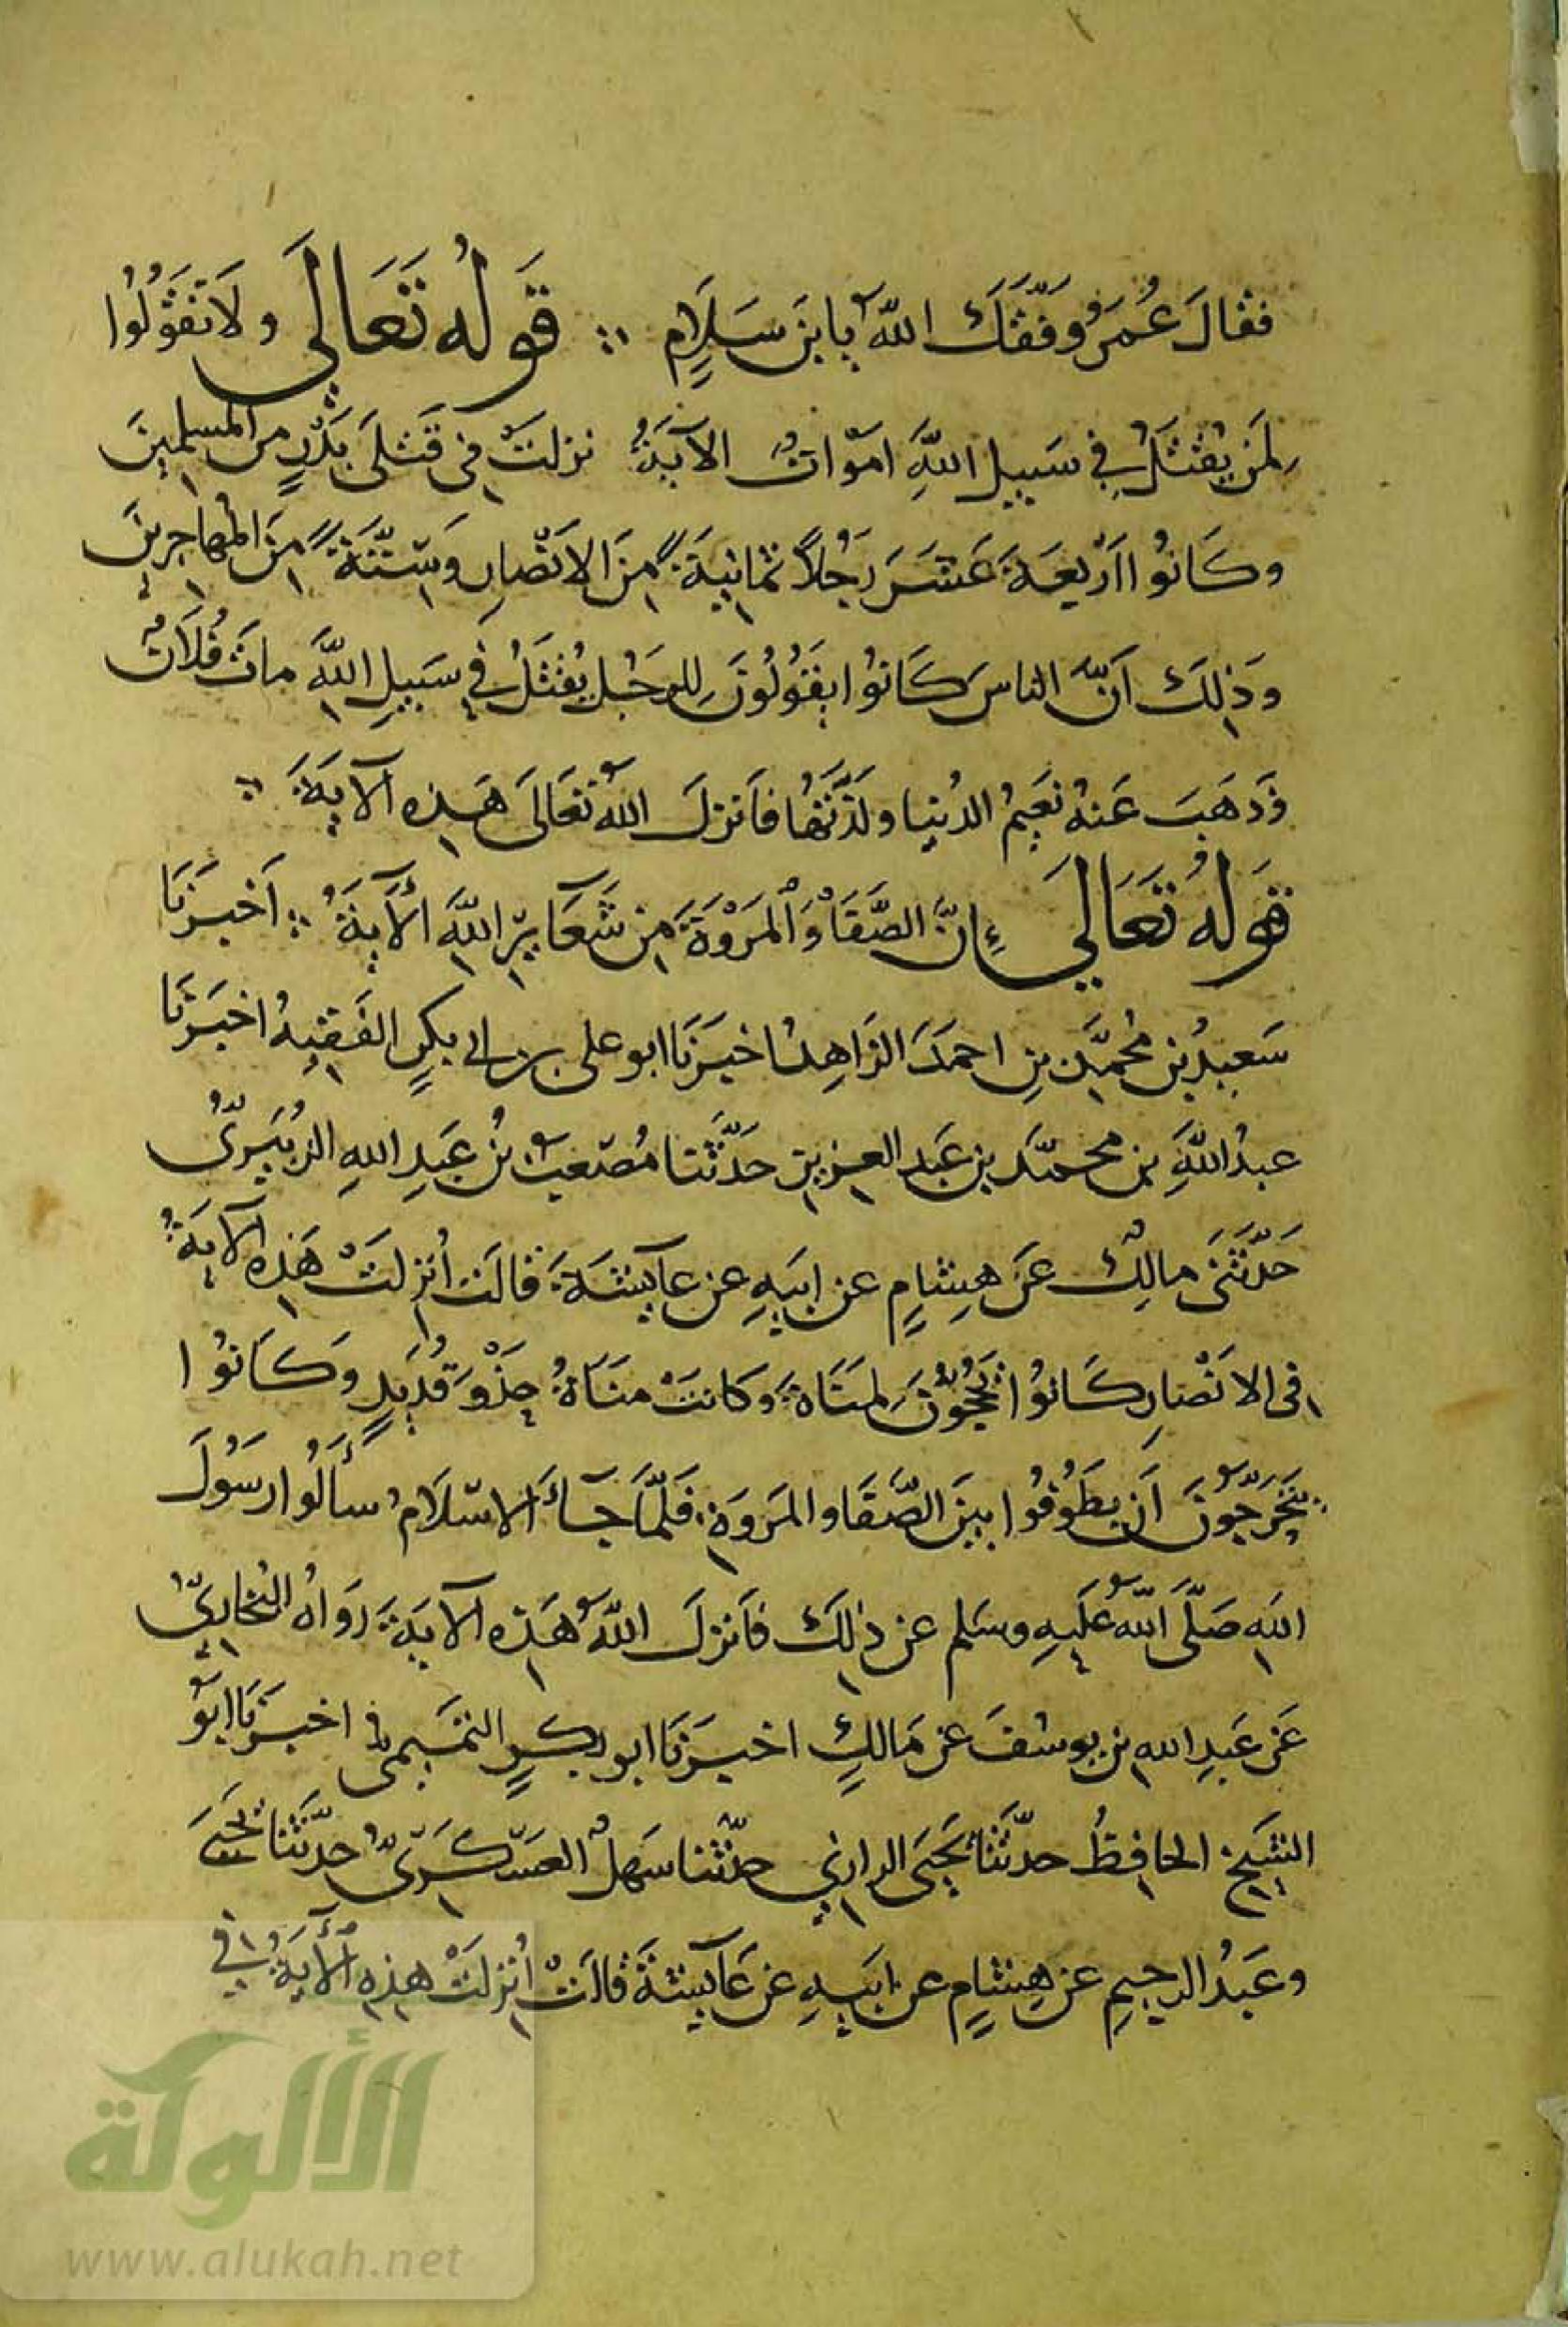 فقالَ عُمَرُ وفّقَكَ اللهُ يا ابنَ سَلَامٍ ∴ قَولُه تَعَالَى ولَا تَقُولُوا
لِمَن يُقتَلُ في سَبيلِ اللهِ امَوَاتٌ الآيَةُ نزلَتْ في قَتلَى بَدْرٍ من المسلِمِينَ
وكَانُوا ارْبعَةَ عَشَرَ رَجُلاً ثمانِيَةً مِنَ الانْصَارِ وَسِتَّةً مِنَ المُهاجِرينَ
وَذلِكَ أَنَّ الناسَ كَانُوا يَقُولُونَ لِلرجُلِ يُقتَلُ في سَبيلِ اللهِ ماتَ فُلَانٌ
وَذَهَبَ عَنهُ نَعِيمُ الدُنيا ولَذَّتُهَا فأنزلَ اللهُ تَعَالَى هَذِه الآيَةَ ∴
قَولُه تَعَالَى إِنَّ الصَّفَا وَالمَرْوَةَ مِن شَعَآئِرِ اللهِ الآيَةُ ∴ اَخبَرَنَا
سَعِيدُ بنُ مُحمَّدِ بنِ احمَدَ الزَاهِدُ اخبَرَنَا ابو على بن ابي بكرٍ الفَقيهُ اخبَرَنَا
عبدُ اللهِ بن محمّد بنِ عَبدِ العزيزِ حَدَّثَنا مُصْعَبُ بنُ عَبدِ اللهِ الزُبَيرىُّ
حَدّثَنَى مالِكٌ عَن هِشامٍ عن ابيهِ عن عآئشَةَ قالَت أُنزِلَتْ هَذِه الآيَةُ
في الانْصَارِ كَانُوا يَحُجُّونَ لِمَنَاةَ وكانتْ مَنَاةُ حِذْوَ قُدَيدٍ وكَانُوا
يَتَحَرَّجُونَ اَن يطَوَّفُوا بينَ الصَّفَا والمَروَةِ فَلمَّا جآءَ الاسْلَامُ سأَلُوا رسُولَ
اللهِ صَلَّى اللهُ عَلَيهِ وسَلم عن ذلِكَ فأنزلَ اللهُ هَذِه الآيَةَ رَوَاهُ البُخارىّ
عَن عَبدِ اللهِ بنِ يوسُفَ عن مَالِكٍ اخبرَنَا ابو بكرٍ التمَيمى اخبَرَنَا ابو
الشَيخِ الحافِظُ حدّثَنَا يَحيَى الرازي حدّثنا سَهلٌ العَسْكَرىُّ حدّثَنَا يَحيَى
وعَبدُ الرحيمِ عن هِشامٍ عن ابيهِ عن عآئشَةَ قالَتْ أُنزلَتْ هذِهِ الآيَةُ في
الألوكة
www.alukah.net